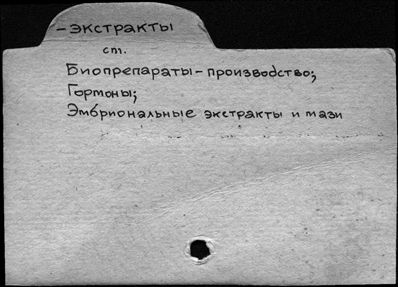 -экстракты
ст.
Биопрепараты-производство;
Гормоны;
Эмбриональные экстракты и мази